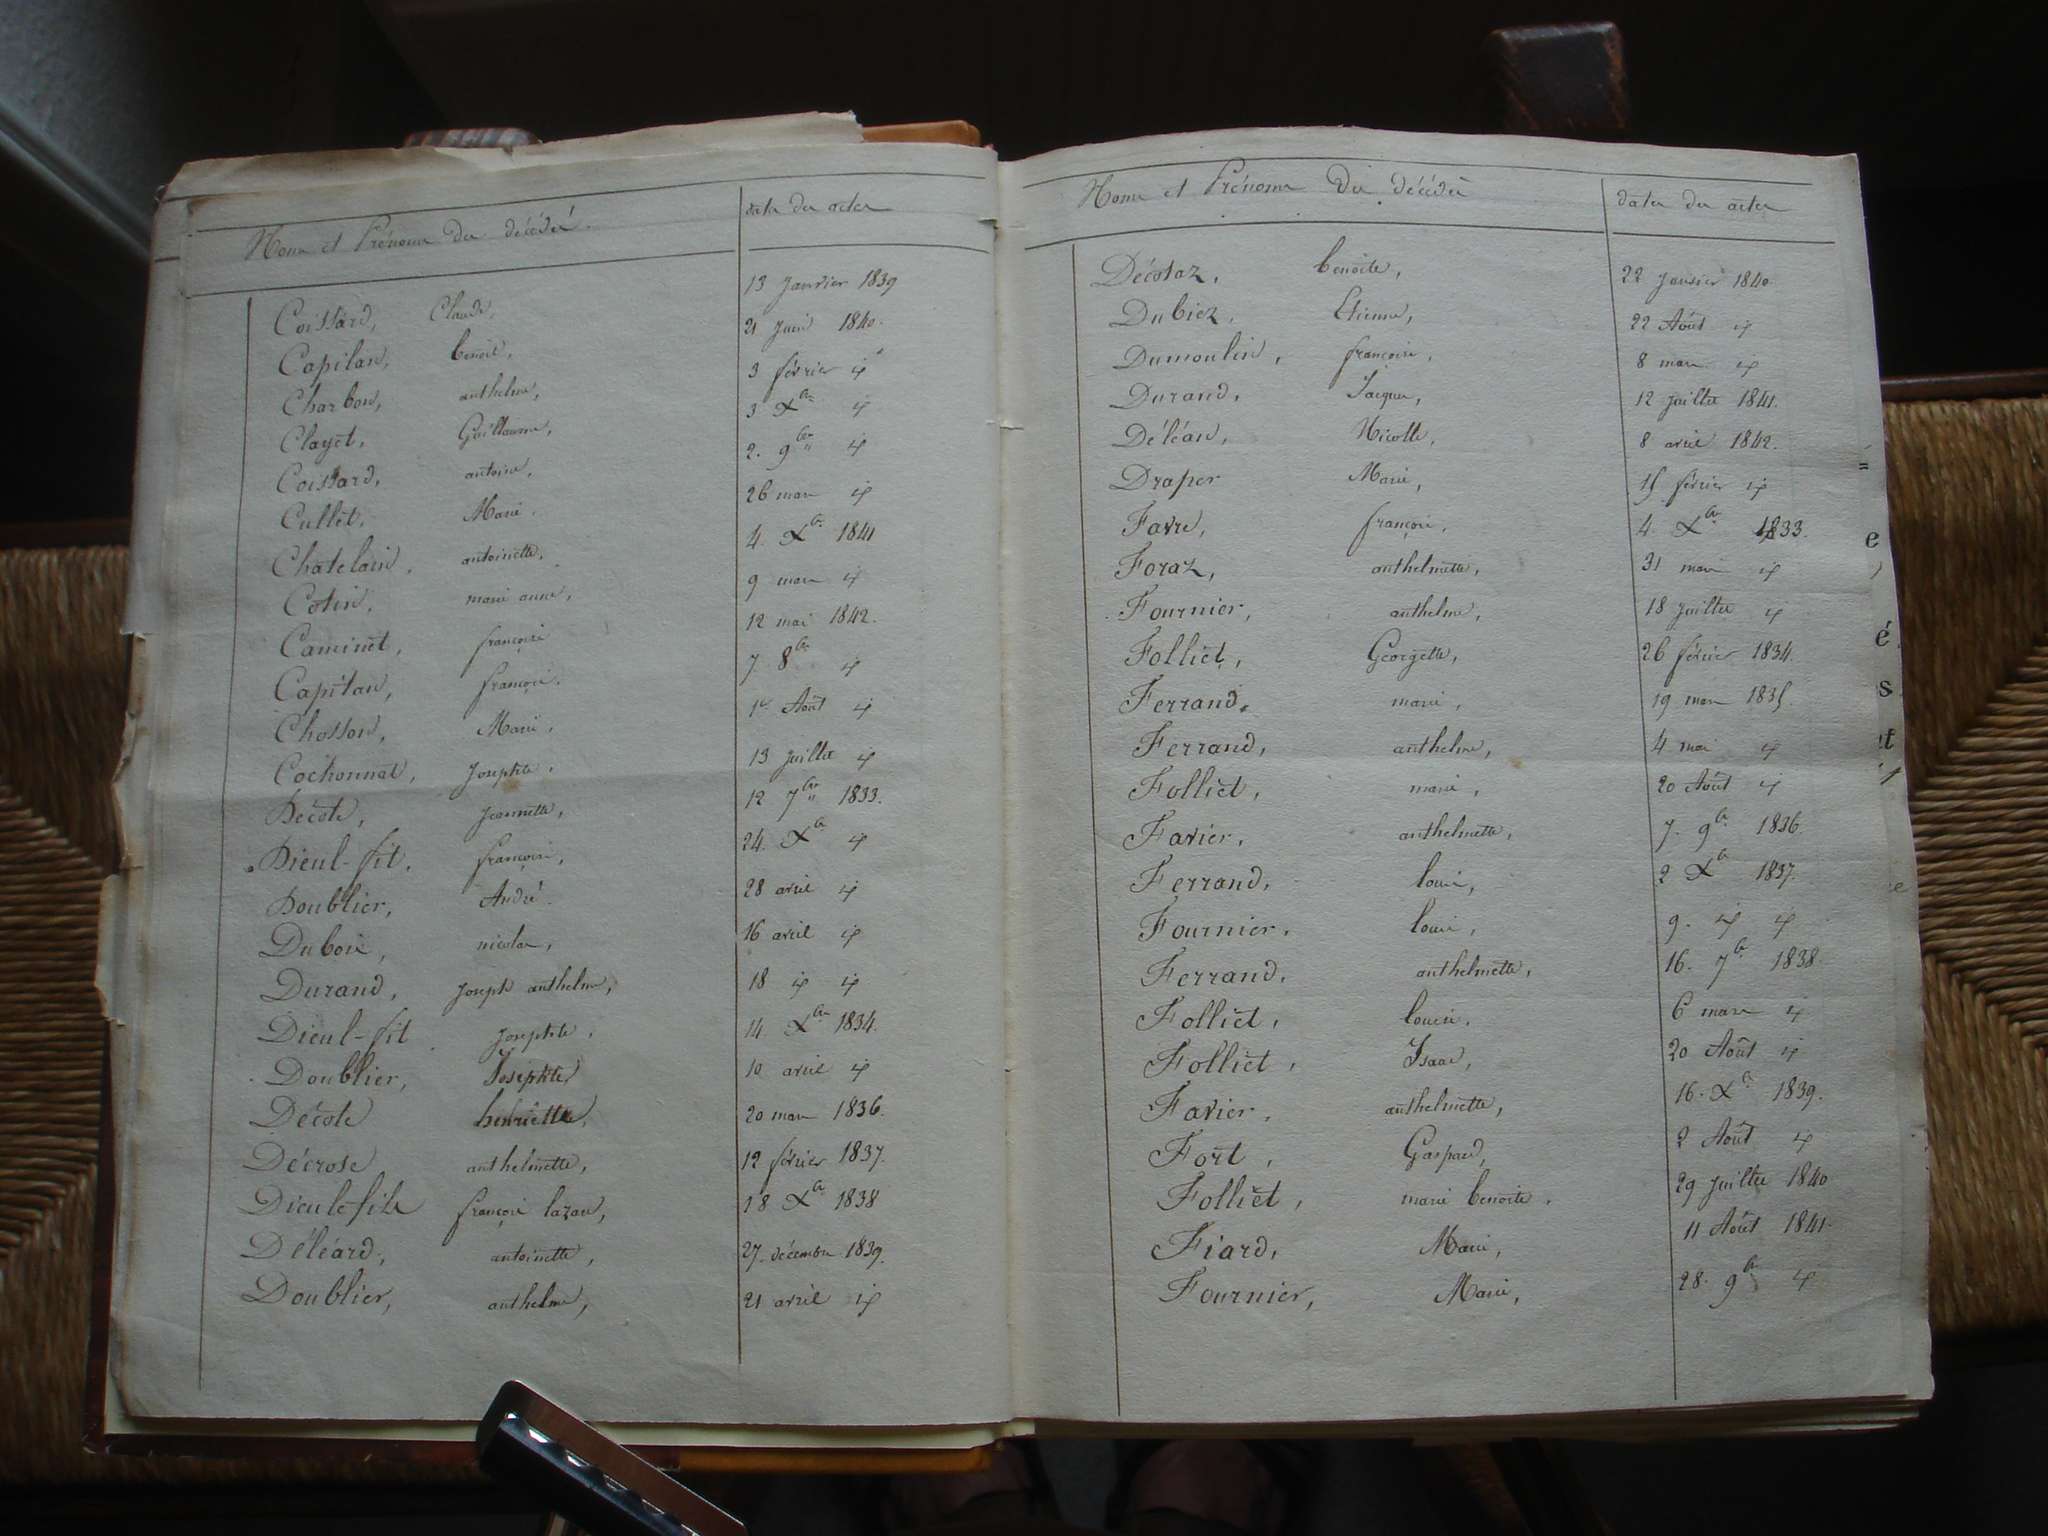 Noms et Prénoms du décédé. date des actes
Coissard, Claude, 13 Janvier 1839
Capitan, benoit, 21 Juin 1840.
Charbon, anthelme, 3 février id
Clayet, Guillaume, 3 Xbre id
Coissard, antoine, 2. 9bre id
Cullet, Marie. 26 mars id
Chatelain, antoinette, 4. Xbre 1841
Cotin, marie anne, 9 mars id
Caminet, françoise 12 mai 1842.
Capitan, françois. 7 8bre id
Chosson, Marie, 1er Août id
Cochonnat, Josephte, 13 juillet id
Décote, Jeannette, 12 7bre 1833.
Dieul-fit, françois, 24. Xbre id
Doublier, André. 28 avril id
Dubois, nicolas, 16 avril id
Durand, Joseph anthelme, 18 id id
Dieul-fit Josephte, 14. Xbre 1834.
Doublier, Josephte, 10 avril id
Décote henriette, 20 mars 1836.
Décrose anthelmette, 12 février 1837.
Dieulefils françois lazare, 18 Xbre 1838
Déléard, antoinette, 27. décembre 1839.
Doublier, anthelme, 21 avril id
Noms et Prénoms du décédé dates des actes
Décotaz, benoite, 22 Janvier 1840
Dubiez, Etienne, 22 Août id
Dumoulin, françoise, 8 mars id
Durand, Jacques, 12 juillet 1841.
Déléan, Nicolle, 8 avril 1842.
Draper Marie, 15 février id
Favre, françois, 4. Xbre 1833.
Foraz, anthelmette, 31 mars id
Fournier, anthelme, 18 Juillet id
Folliet, Georgette, 26 février 1834.
Ferrand, marie, 19 mars 1835.
Ferrand, anthelme, 4 mai id
Folliet, marie, 20 Août id
Favier, anthelmette, 7. 9bre 1836.
Ferrand, louis, 2 Xbre 1837.
Fournier, louis, 9. id id
Ferrand, anthelmette, 16. 7bre 1838.
Folliet, louise, 6 mars id
Folliet, Isaac, 20 Août id
Favier, anthelmette, 16. Xbre 1839.
Fort, Gaspard, 2 Août id
Folliet, marie benoite. 29 juillet 1840
Fiard, Marie, 11 Août 1841.
Fournier, Marie, 28. 9bre id